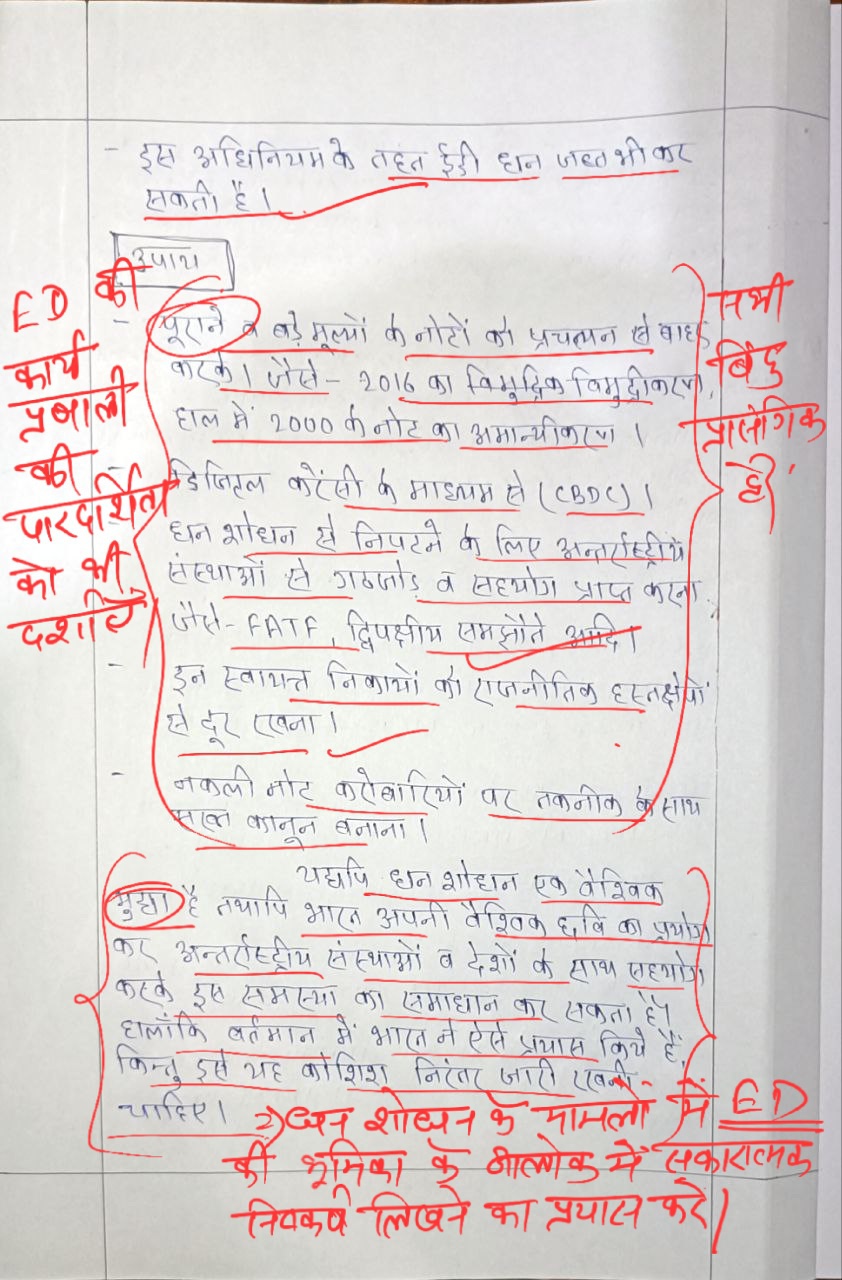 - इस अधिनियम के तहत ईडी धन जब्त भी कर
सकती है।
उपाय
- पूराने व बड़े मूल्यों के नोटों को प्रचलन से बाहर
करके। जैसे - 2016 का विमुद्रिक विमुद्रीकरण,
हाल में 2000 के नोट का अमान्यीकरण।
- डिजिटल करेंसी के माध्यम से (CBDC)।
धन शोधन से निपटने के लिए अन्तर्राष्ट्रीय
संस्थाओं से गठजोड़ व सहयोग प्राप्त करना
जैसे - FATF, द्विपक्षीय समझौते आदि।
- इन स्वायत्त निकायों को राजनीतिक हस्तक्षेपों
से दूर रखना।
- नकली नोट करोबारियों पर तकनीक के साथ
सख्त कानून बनाना।
यद्यपि धन शोधन एक वैश्विक
मुद्दा है तथापि भारत अपनी वैश्विक छवि का प्रयोग
कर अन्तर्राष्ट्रीय संस्थाओं व देशों के साथ सहयोग
करके इस समस्या का समाधान कर सकता है।
हालाँकि वर्तमान में भारत ने ऐसे प्रयास किये हैं,
किन्तु इसे यह कोशिश निरंतर जारी रखनी
चाहिए।
ED की
कार्य
प्रणाली
की
पारदर्शिता
को भी
दर्शाएं
सभी
बिंदु
प्रासंगिक
हैं
2) धन शोधन के मामलों में ED
की भूमिका के आलोक में सकारात्मक
निष्कर्ष लिखने का प्रयास करें।